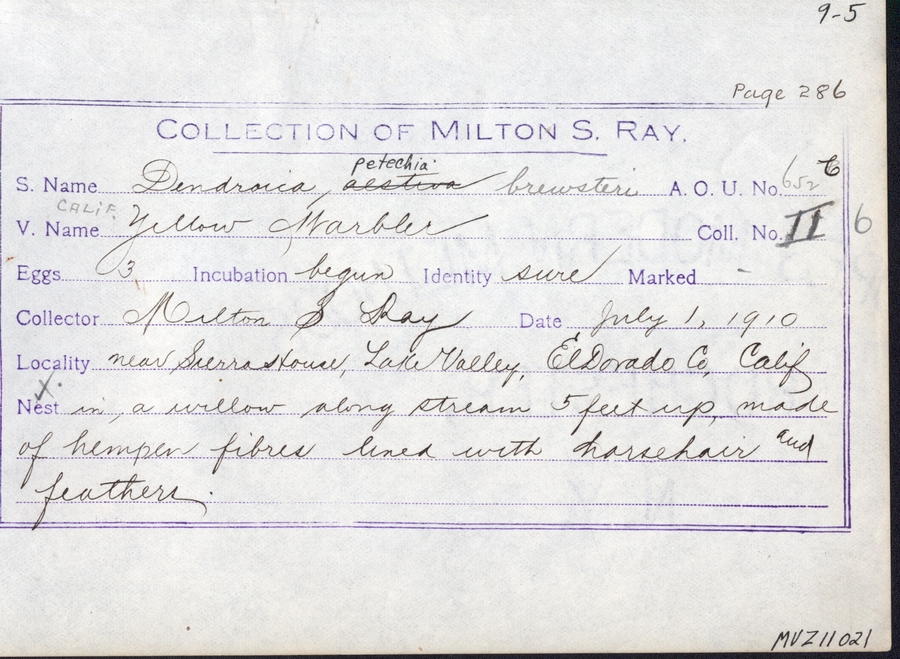 9-5
Page 286
COLLECTION OF MILTON S. RAY.
petechia
S. Name Dendroica, aestiva brewsteri A. O. U. No. 652 b
CALIF.
V. Name Yellow Warbler Coll. No. II 6
Eggs 3 Incubation begun Identity sure Marked -
Collector Milton S Ray Date July 1, 1910
Locality near Sierra House, Lake Valley, El Dorado Co, Calif
X.
Nest in, a willow along stream 5 feet up, made
of hempen fibres lined with horsehair and
feathers.
MVZ11021